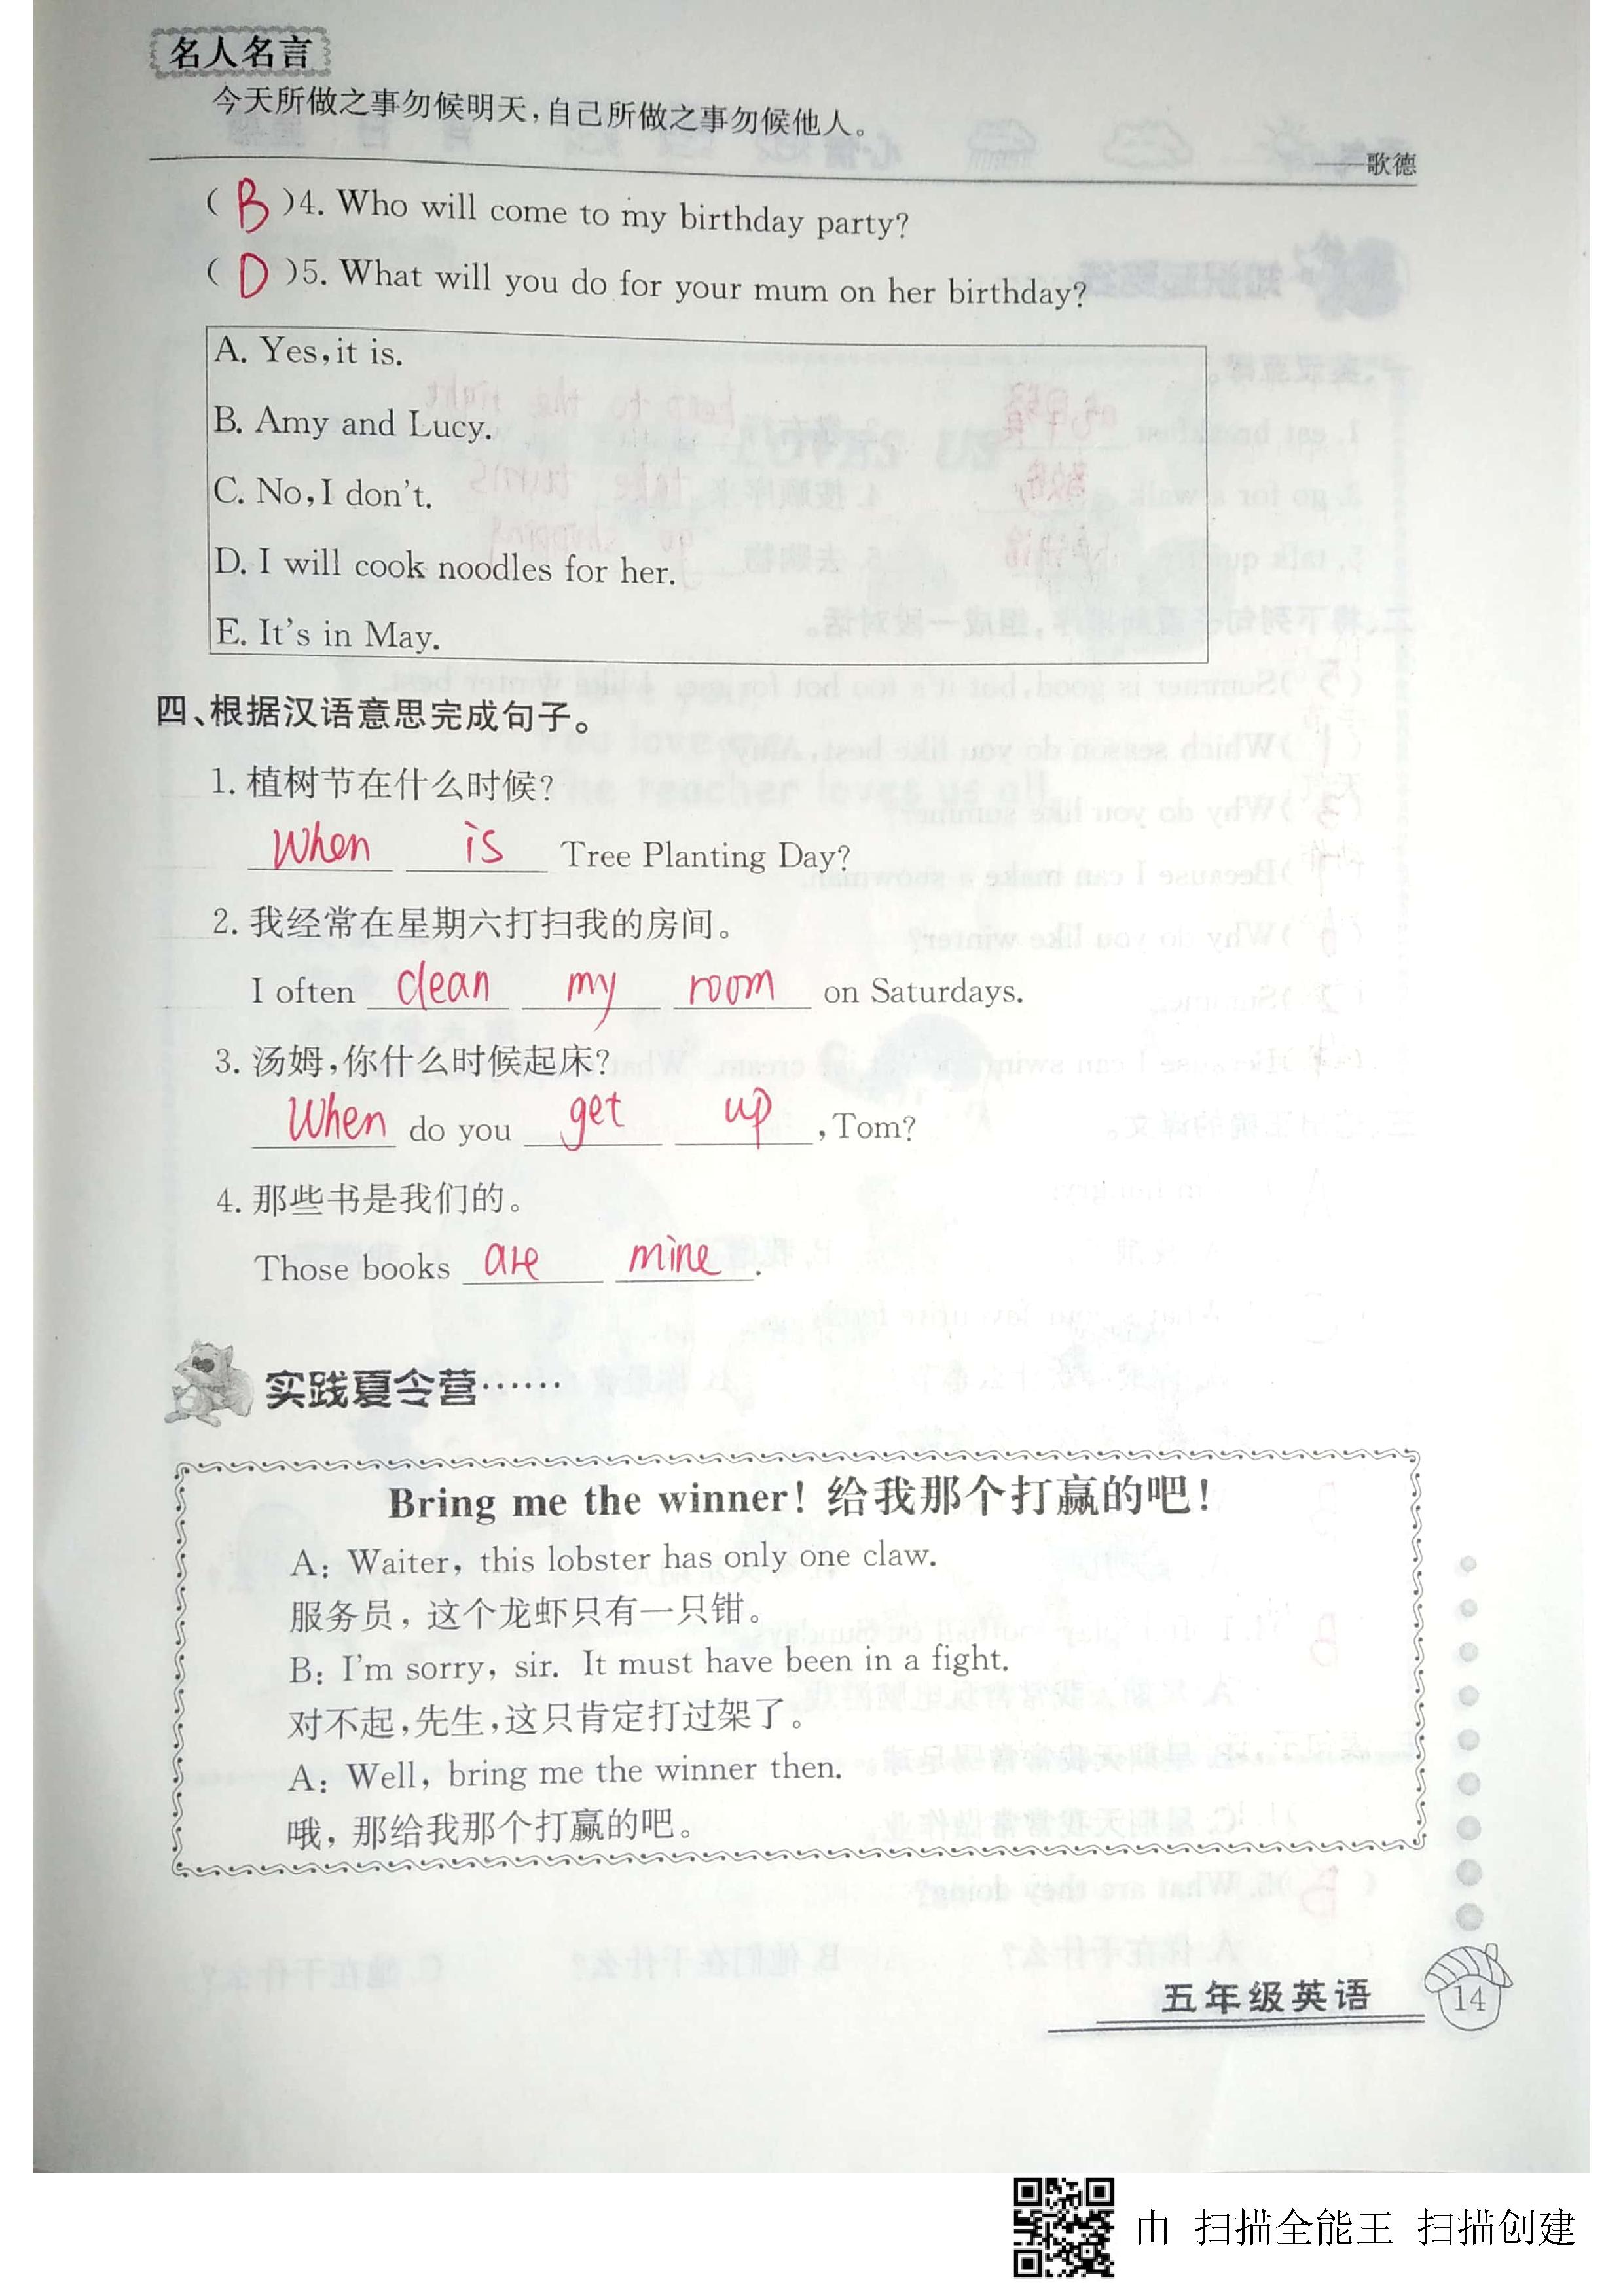 名人名言
今天所做之事勿候明天,自己所做之事勿候他人。
——歌德
( B )4. Who will come to my birthday party?
( D )5. What will you do for your mum on her birthday?
A. Yes,it is.
B. Amy and Lucy.
C. No,I don't.
D. I will cook noodles for her.
E. It's in May.
四、根据汉语意思完成句子。
1. 植树节在什么时候?
When is Tree Planting Day?
2. 我经常在星期六打扫我的房间。
I often clean my room on Saturdays.
3. 汤姆,你什么时候起床?
When do you get up ,Tom?
4. 那些书是我们的。
Those books are mine.
实践夏令营……
Bring me the winner! 给我那个打赢的吧!
A: Waiter, this lobster has only one claw.
服务员, 这个龙虾只有一只钳。
B: I'm sorry, sir. It must have been in a fight.
对不起,先生,这只肯定打过架了。
A: Well, bring me the winner then.
哦, 那给我那个打赢的吧。
五年级英语 14
由 扫描全能王 扫描创建